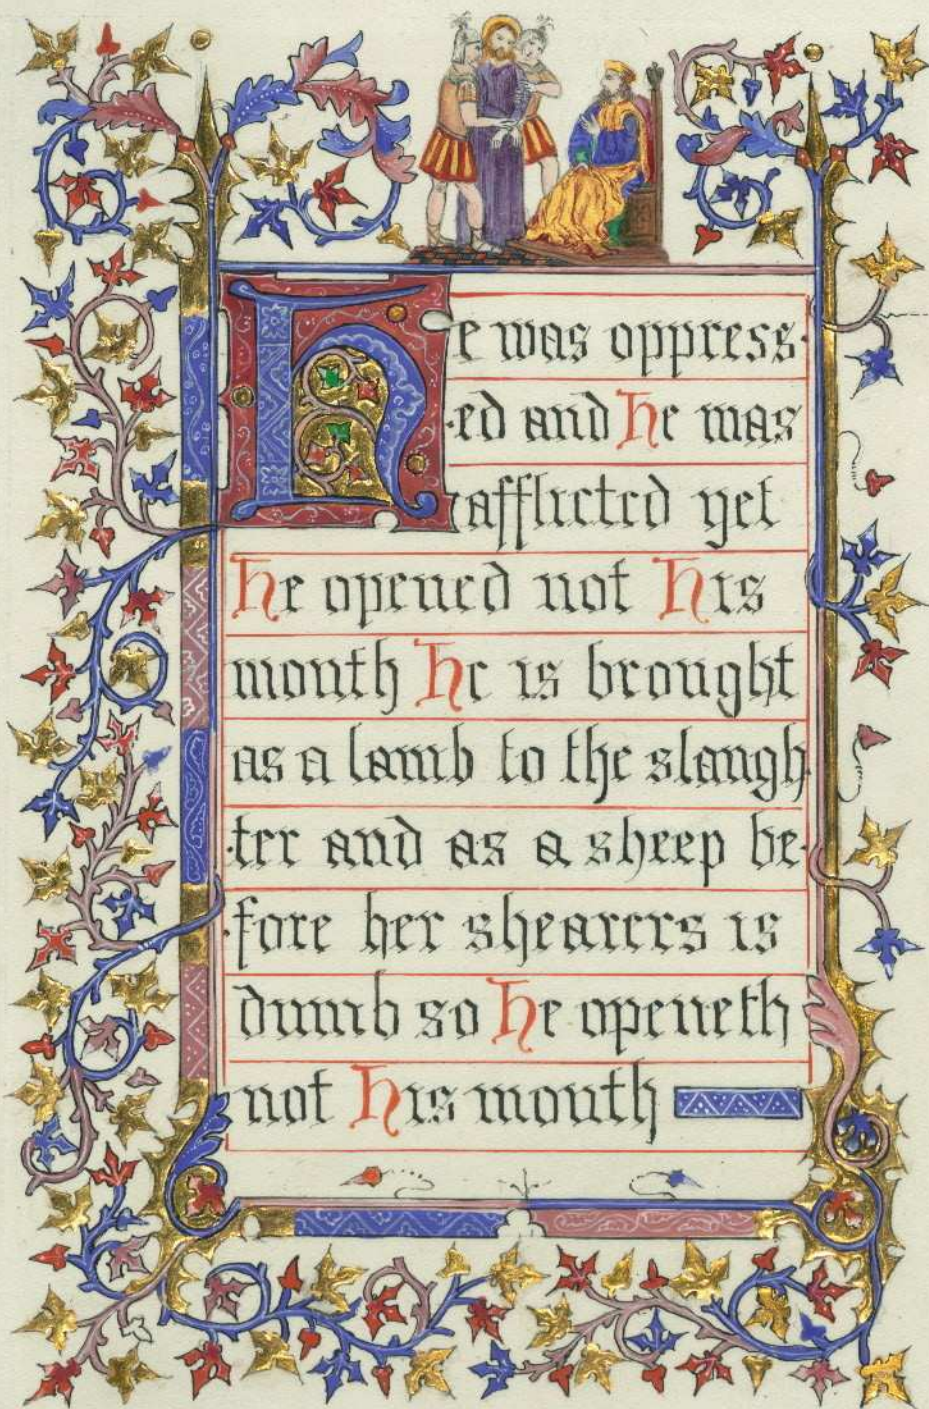 He was oppress
ed and He was
afflicted yet
He opened not His
mouth He is brought
as a lamb to the slaugh
ter and as a sheep be
fore her shearers is
dumb so He openeth
not His mouth